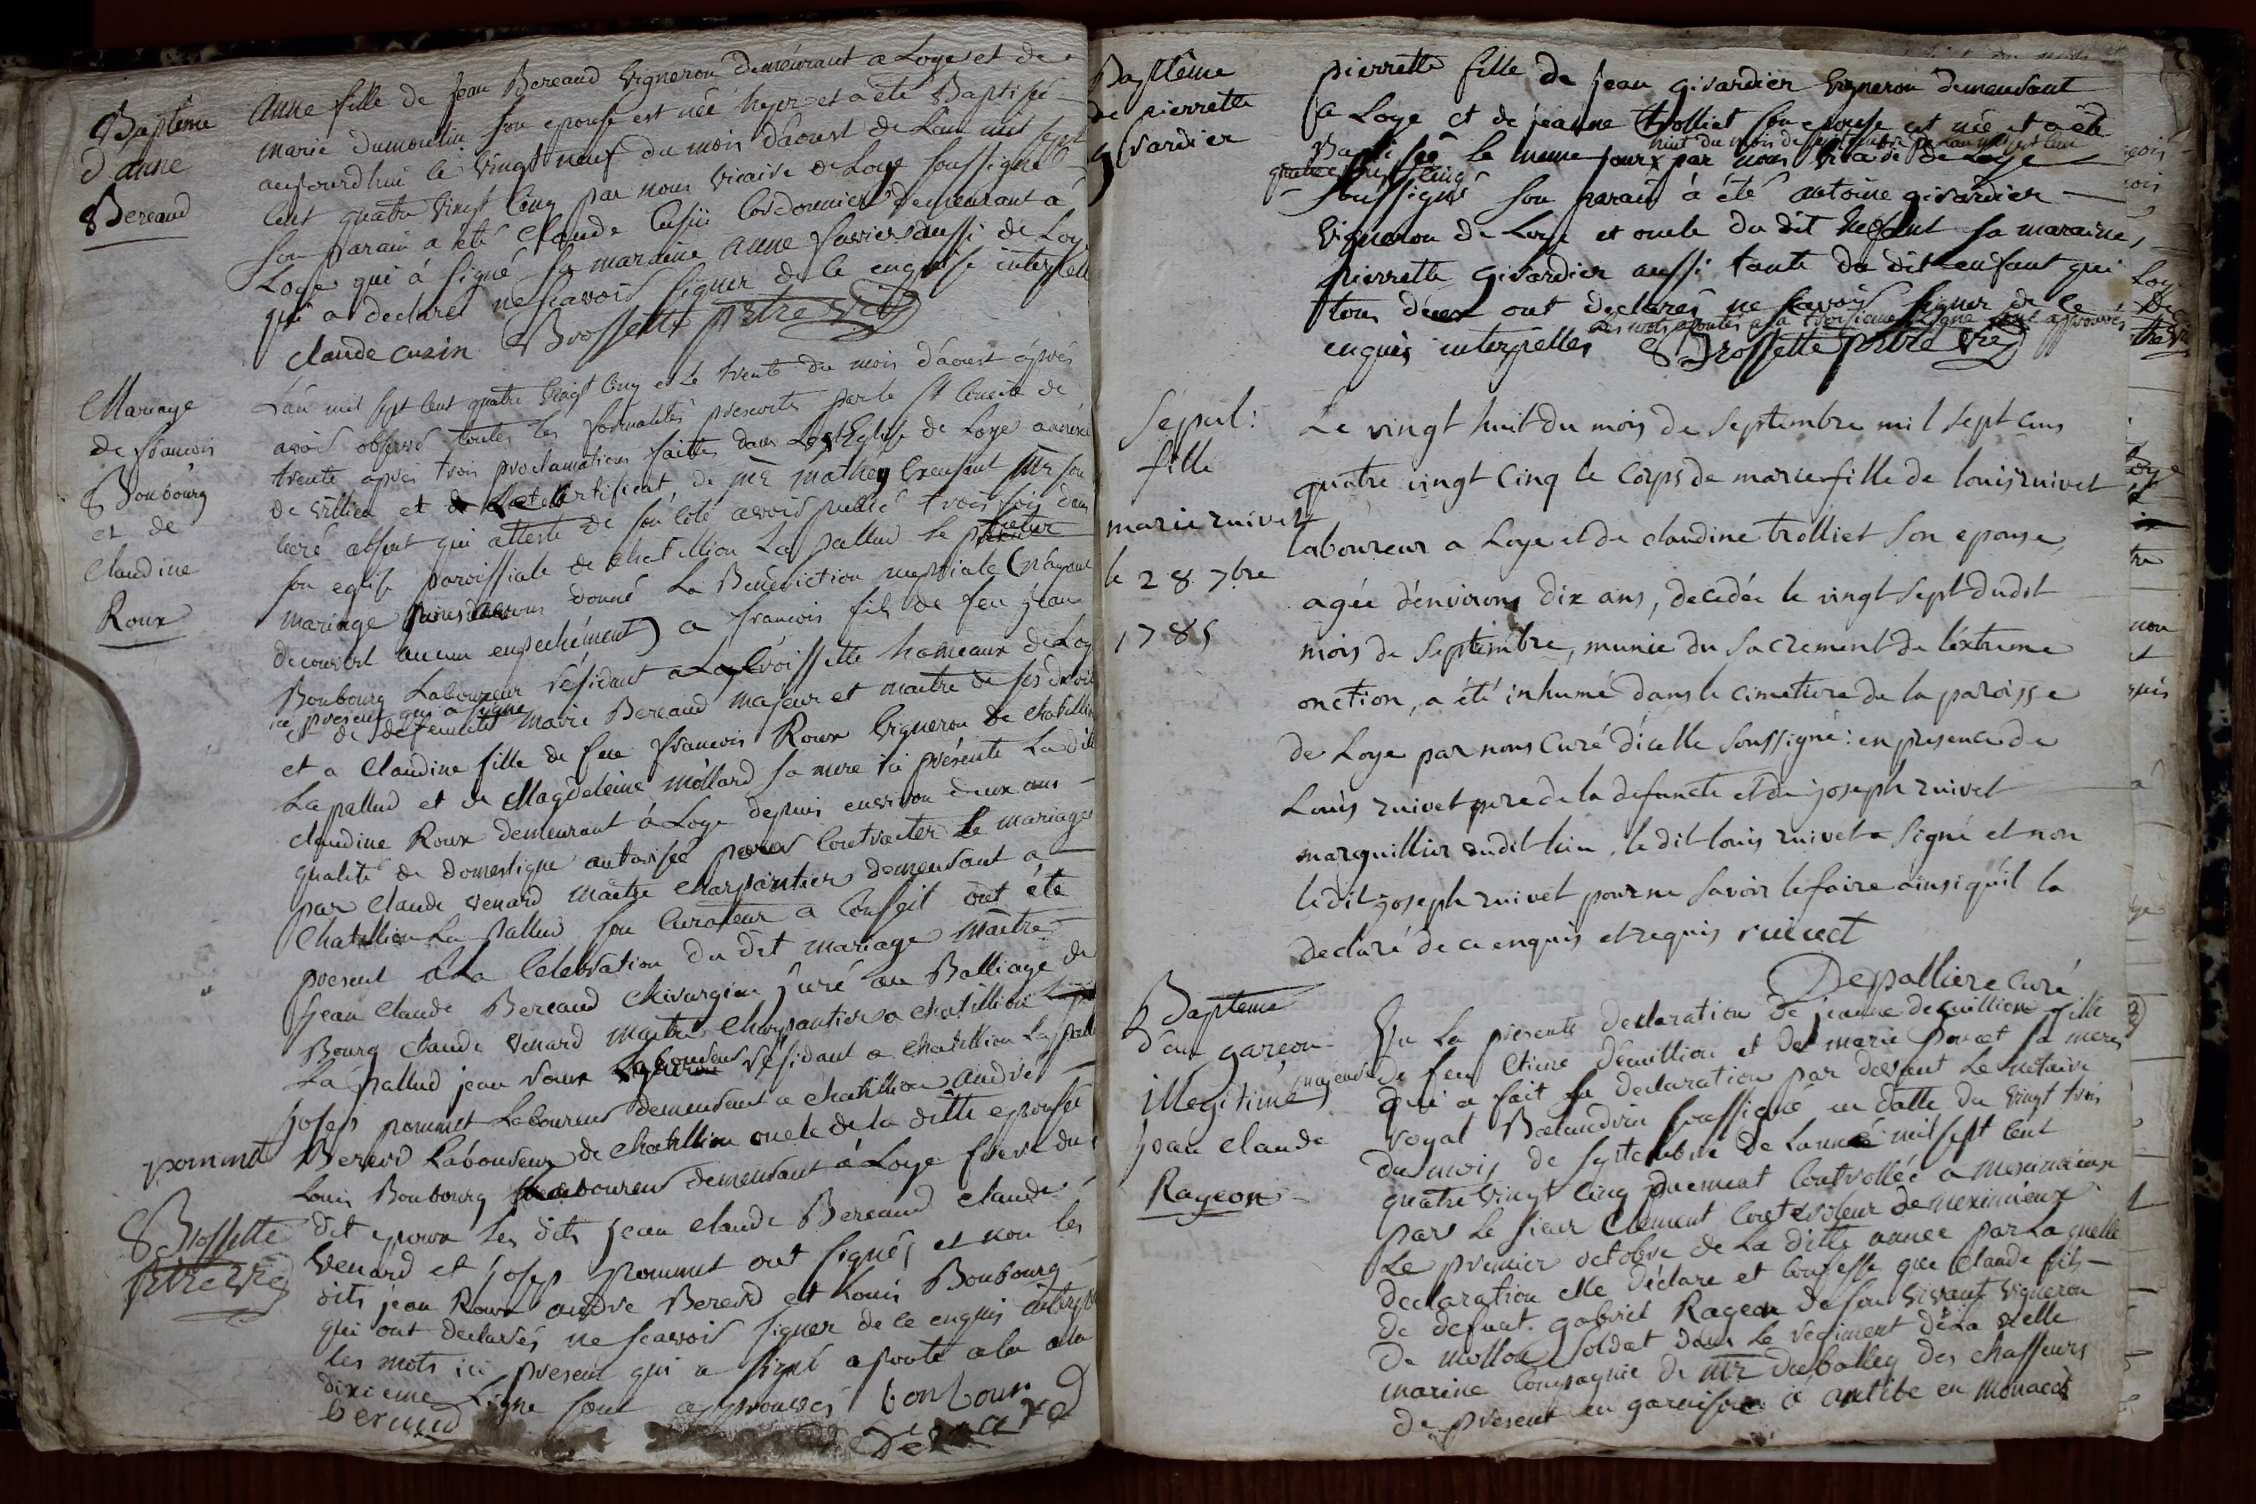 Baptême
d'anne
Bereaud
Anne fille de Jean Bereaud vigneron demeurant a Loye et de
marie dumoulin son epouse est née hyer et a été Baptisée
aujourdhui le vingt neuf du mois d'aoust de L'an mil sept
cent quatre vingt cinq par nous vicaire de Loye soussigné
son parain a été Claude Cusin Cordonnier demeurant à
Loye qui à signé sa maraine anne favier aussi de Loye
qui a declaré ne scavoir signer de ce enquise interpellé
claude cusin Brossette prtre vic
Mariage
de francois
Bonbourg
et de
Claudine
Roux
L'an mil sept cent quatre vingt cinq et le trente du mois d'aoust après
avoir observé toutes les formalités prescrites par le St Concile de
trente après trois proclamations faittes dans Eglise de Loye annéxe
de villieu et certificat de mr mathey
curé absent qui atteste de son coté avoir publié trois fois dans
son eglise paroissiale de chatillion La pallud le
mariage nous avons donné La Benediction nuptiale (n'ayant
decouvert aucun empechément) a francois fils de feu jean
Bonbourg Laboureur résidant a La Croissette hameaux de Loye
ici présent qui a signé
et de defeunte marie Bereaud majeur et maitre de ses droits
et a Claudine fille de feu francois Roux vigneron de chatillion
La pallud et de Magdeleine mollard sa mere ici présente La ditte
claudine Roux demeurant à Loye depuis environ deux ans
qualité de domestique autorisée pour Contracter le mariage
par Claude venard maitre charpantier demeurant a
Chatillion La Pallud son Curateur a Conseil ont été
présent à La Celebration du dit mariage maitre
jean Claude Bereaud chirurgien juré au Balliage de
Bourg Claude venard maitre charpantier a chatillion
La pallud jean roux résidant a chatillion La pallud
joseph pommet Laboureur demeurant a chatillion andré
Bererd Laboureur de Chatillion oncle de la ditte epouse
Louis Bonbourg Laboureur demeurant à Loye frere du
dit epoux les dits jean claude Bereaud claude
venard et joseph pommet ont signés et non les
dits jean Roux andre Bererd et Louis Bonbourg
qui ont declarés ne scavoir signer de ce enquis
les mots ici present qui a signé ajouté a la
dixieme Ligne sont approuvés bonbour
bereaud
venard
pommet
Brossette
prtre vic
Baptême
de pierrette
givardier
pierrette fille de jean givardier vigneron demeurant
a Loye et de jeanne trolliet son epouse est née et a été
huit du mois de septembre de l'an mil sept cent
Baptisée le meme jour par nous vicaire de Loye
quatre vingt cinq
soussigné son parain à été antoine givardier
vigneron de Loye et oncle du dit enfant sa maraine
pierrette givardier aussi tante du dit enfant qui
tous deux ont declarés ne scavoir signer de ce
les mots ajoutés a la troisieme Ligne sont approuvés
enquis interpellés Brossette prtre vic
Sépul:
fille
marie ruivet
le 28 7bre
1785
Le vingt huit du mois de Septembre mil sept cens
quatre vingt cinq le corps de marie fille de louis ruivet
laboureur a Loye et de claudine trolliet son epouse,
agée d'environs dix ans, decedée le vingt sept dudit
mois de septembre, munie du sacrement de l'extreme
onction, a été inhumé dans le cimetiere de la paroisse
de Loye par nous curé d'icelle soussigné: en presence de
Louis ruivet pere de la defuncte et de joseph ruivet
marguillier dudit lieu. le dit louis ruivet a signé et non
le dit joseph ruivet pour ne savoir le faire ainsi qu'il la
declaré de ce enquis et requis ruivet
Depalliere curé
Bapteme
d'un garcon
illegitime
jean Claude
Rageon
Vu La présente declaration de jeanne deguillion fille
majeure de feu Etiene déguillion et de marie Poncet sa mere
qui a fait sa declaration par devant Le notaire
royal Balandrin soussigné en datte du vingt trois
du mois de septembre de Lannée mil sept cent
quatre vingt cinq duement Controllée a meximieux
par Le sieur Clement Controleur de meximieux
Le premier octobre de La ditte année par La quelle
declaration elle declare et confesse que Claude fils
de defunt gabriel Rageon de son vivant vigneron
de mollon soldat dans Le regiment de La
marine compagnie de mr des chasseurs
de présent en garnison à antibe en monaco